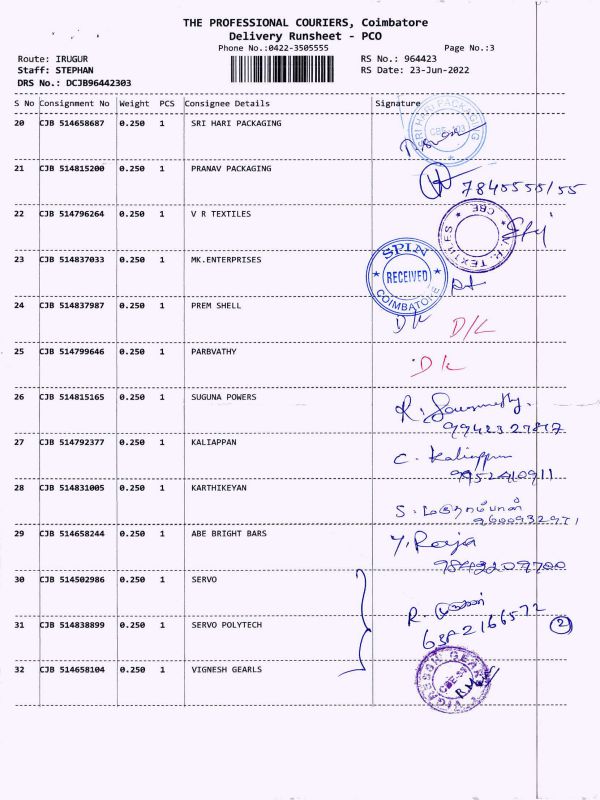 THE PROFESSIONAL COURIERS, Coimbatore
Delivery Runsheet - PCO
Phone No.:0422-3505555 Page No.:3
Route: IRUGUR RS No.: 964423
Staff: STEPHAN RS Date: 23-Jun-2022
DRS No.: DCJB96442303
S No Consignment No Weight PCS Consignee Details Signature
20 CJB 514658687 0.250 1 SRI HARI PACKAGING
SRI HARI PACKAGING
21 CJB 514815200 0.250 1 PRANAV PACKAGING
7845555155
22 CJB 514796264 0.250 1 V R TEXTILES
V.R. TEXTILES CBE
23 CJB 514837033 0.250 1 MK.ENTERPRISES
SPIN
RECEIVED
COIMBATORE
24 CJB 514837987 0.250 1 PREM SHELL
D/L D/L
25 CJB 514799646 0.250 1 PARBVATHY
D/L
26 CJB 514815165 0.250 1 SUGUNA POWERS
27 CJB 514792377 0.250 1 KALIAPPAN
C. Kaliappan
9952410911
28 CJB 514831005 0.250 1 KARTHIKEYAN
9600932971
29 CJB 514658244 0.250 1 ABE BRIGHT BARS
Y. Raja
9842209700
30 CJB 514502986 0.250 1 SERVO
31 CJB 514838899 0.250 1 SERVO POLYTECH
6382166572 2
32 CJB 514658104 0.250 1 VIGNESH GEARLS